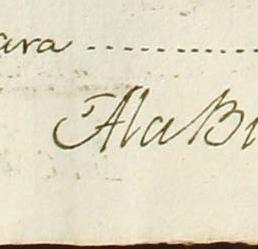 ara ..............
A la Bu